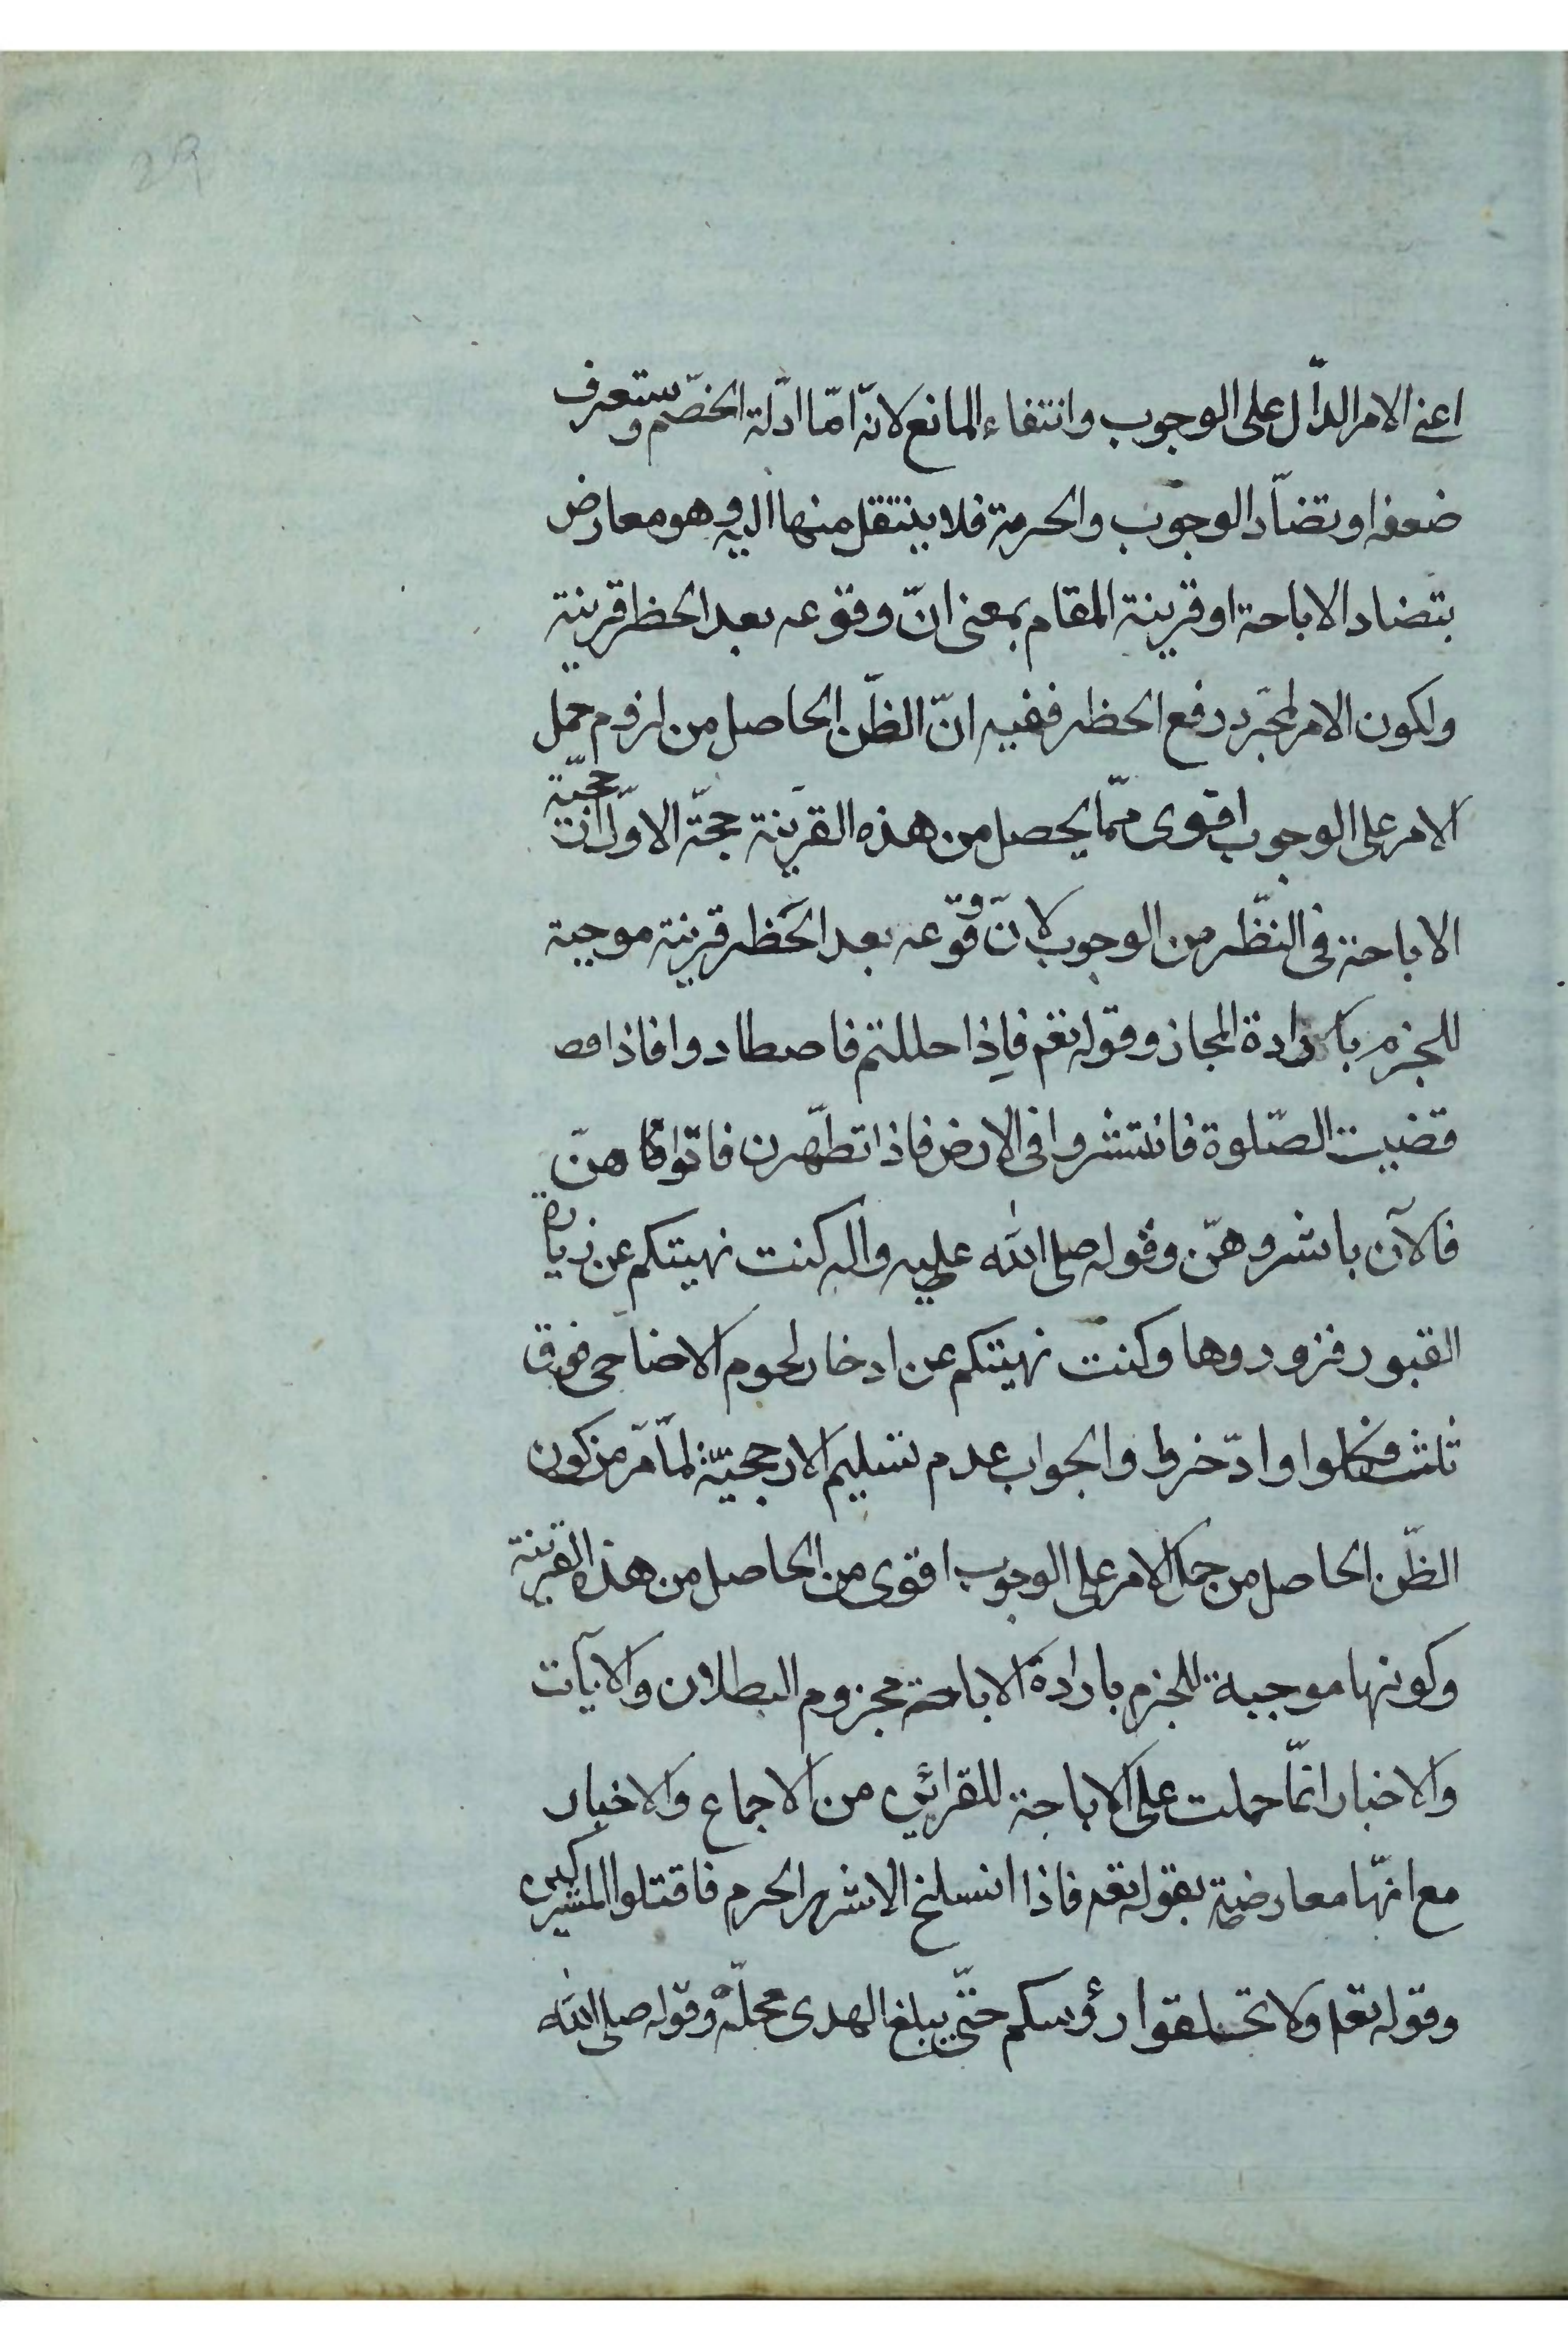 29
اعنى الامر الدّال على الوجوب وانتفاء المانع لانّه امّا ادلّة الخصم وستعرف
ضعفها وتضادّ الوجوب والحرمة فلا ينتقل منها اليه وهو معارض
بتضاد الاباحة او قرينة المقام بمعنى انّ وقوعه بعد الحظر قرينة
ولكون الامر لمجرّد رفع الحظر ففيه انّ الظّن الحاصل من لزوم حمل
الامر على الوجوب اقوى ممّا يحصل من هذه القرينة حجّة الاوّل انّ
الاباحة فى النّظر من الوجوب لانّ وقوعه بعد الحَظر قرينة موجبة
للجزم بارادة المجاز وقوله تعم فاِذا حللتم فاصطادوا فاذا
قضيت الصّلوة فانتشروا فى الارض فاذا تطهّرن فاتوهنّ
فالآن باشروهنّ وقوله صلى اللّٰه عليه واله كنت نهيتكم عن زيارة
القبور فزوروها وكنت نهيتكم عن ادخار لحوم الاضاحى فوق
ثلث فكلوا وادّخروا والجواب عدم تسليم الارجحيّة لمّا مرّ من كون
الظّن الحاصل من حمل الامر على الوجوب اقوى من الحاصل من هذه القرينة
وكونها موجبة للجزم بارادة الاباحة مجزوم البطلان والآيات
والاخبار انّما حملت على الاباحة للقرائن من الاجماع والاخبار
مع انّها معارضة بقوله تعم فاذا انسلخ الاشهر الحرم فاقتلوا المشركين
وقوله تعم ولا تحلقوا رؤسكم حتّى يبلغ الهدى محلّه وقوله صلى اللّٰه